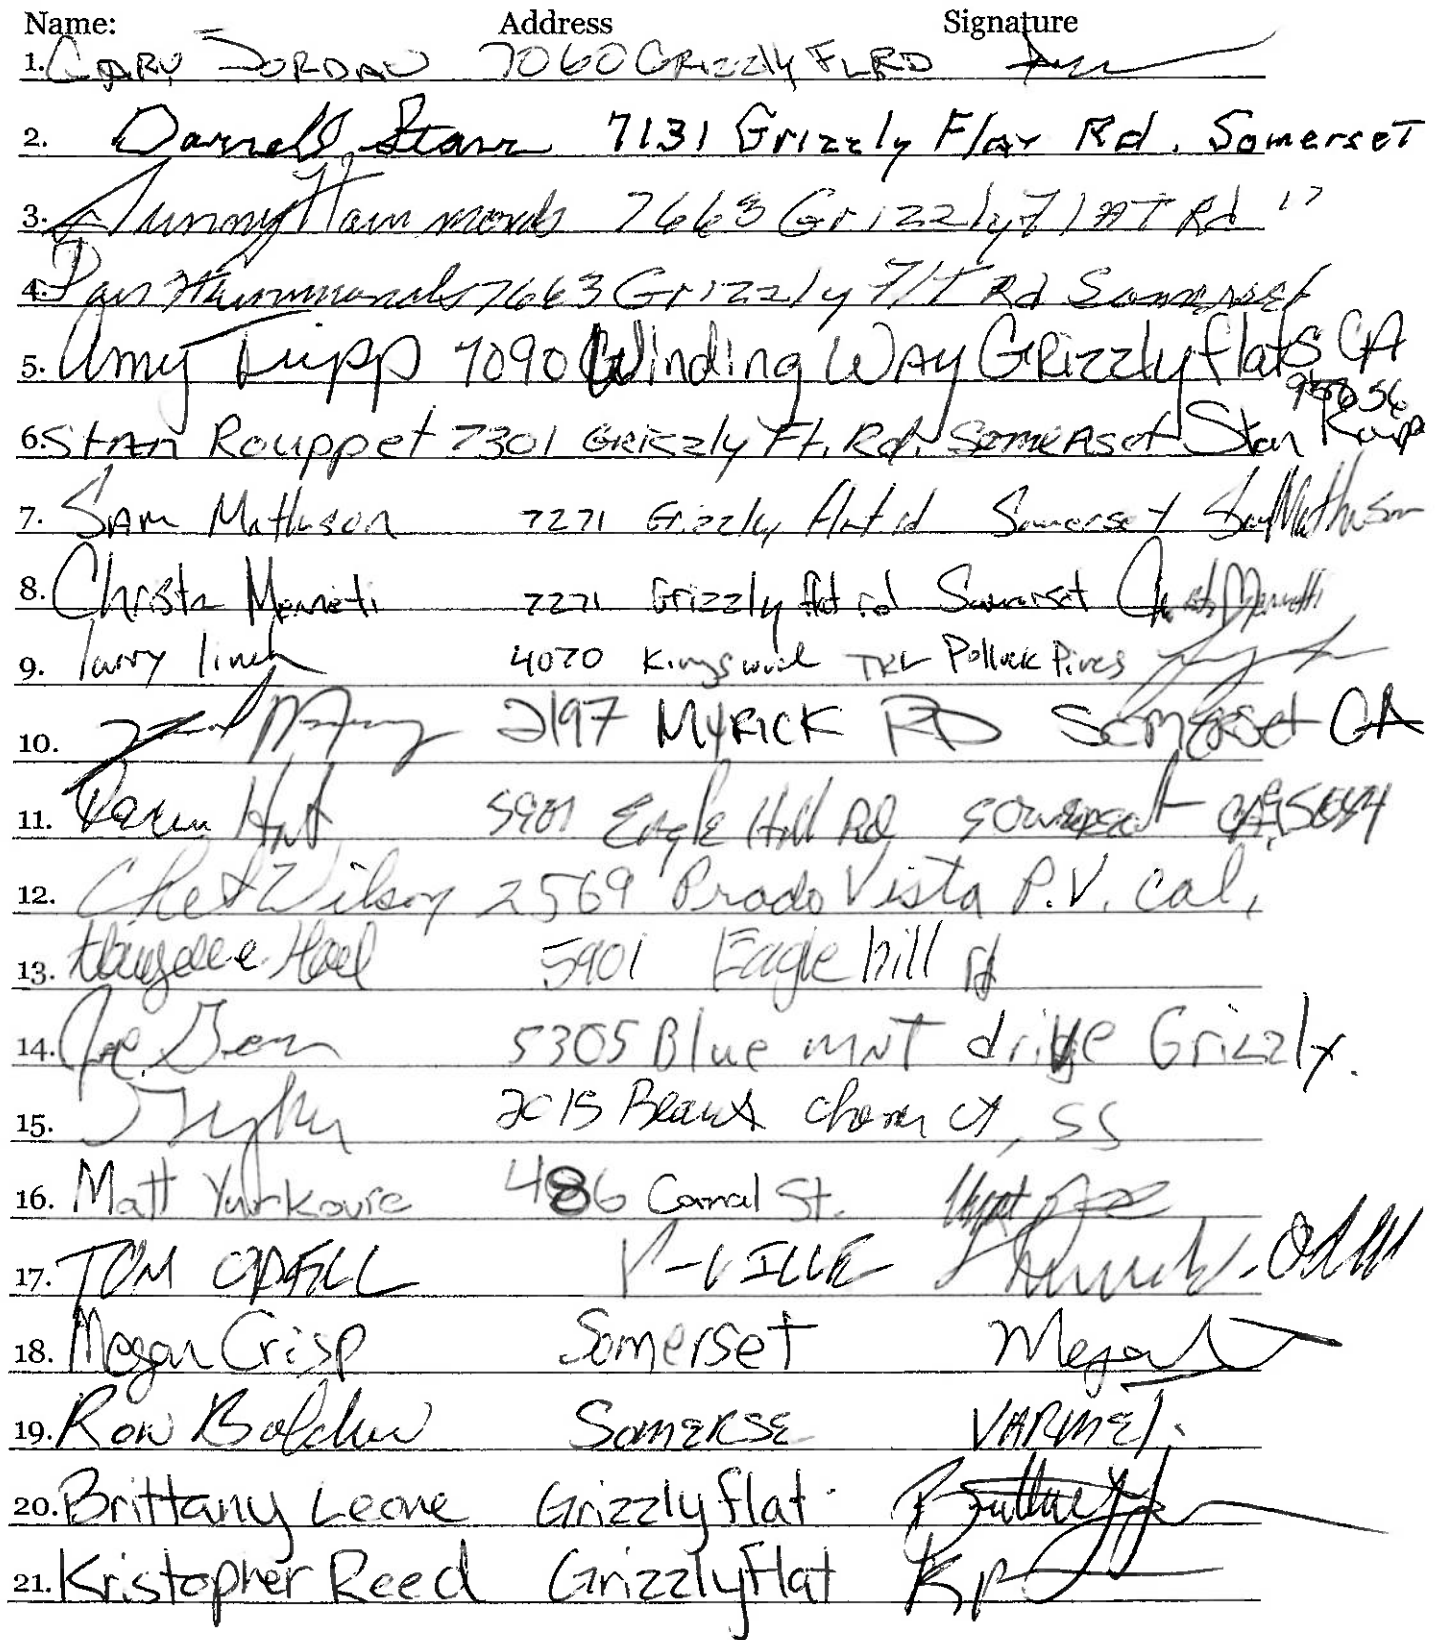 Name: Address Signature
1. GARY JORDAN 7060 GRizzly FLRD
2. Darrell Starr 7131 Grizzly Flat Rd. Somerset
3. Hammonds 7663 Grizzly Flat Rd "
4. Hammonds 7663 Grizzly Flt Rd Somerset
5. Amy Tripp 7090 Winding WAy GRizzly flats CA
95636
6. Stan Rouppet 7301 Grizzly Ft. Rd. Somerset Stan Roupp
7. SAM Mathison 7271 Grizzly flat rd Somerset Sam Mathison
8. Christa 7271 Grizzly flat rd Somerset
9. larry linch 4070 Kingswood TRL Pollock Pines
10. 2197 MYRICK RD Somerset CA
11. Karen Hnt 5901 Eagle Hill Rd Somerset CA,
12. Chet Wilson 2569 Prado Vista P.V. Cal,
13. 5901 Eagle hill rd
14. Joe 5305 Blue mNT drive Grizzly.
15. 2015 ct, SS
16. Matt Yurkovic 486 Canal St.
17. TOM ODELL P-VILLE
18. Megan Crisp Somerset Megan
19. Ron SOMERSE
20. Brittany Leone Grizzly flat
21. Kristopher Reed Grizzlyflat